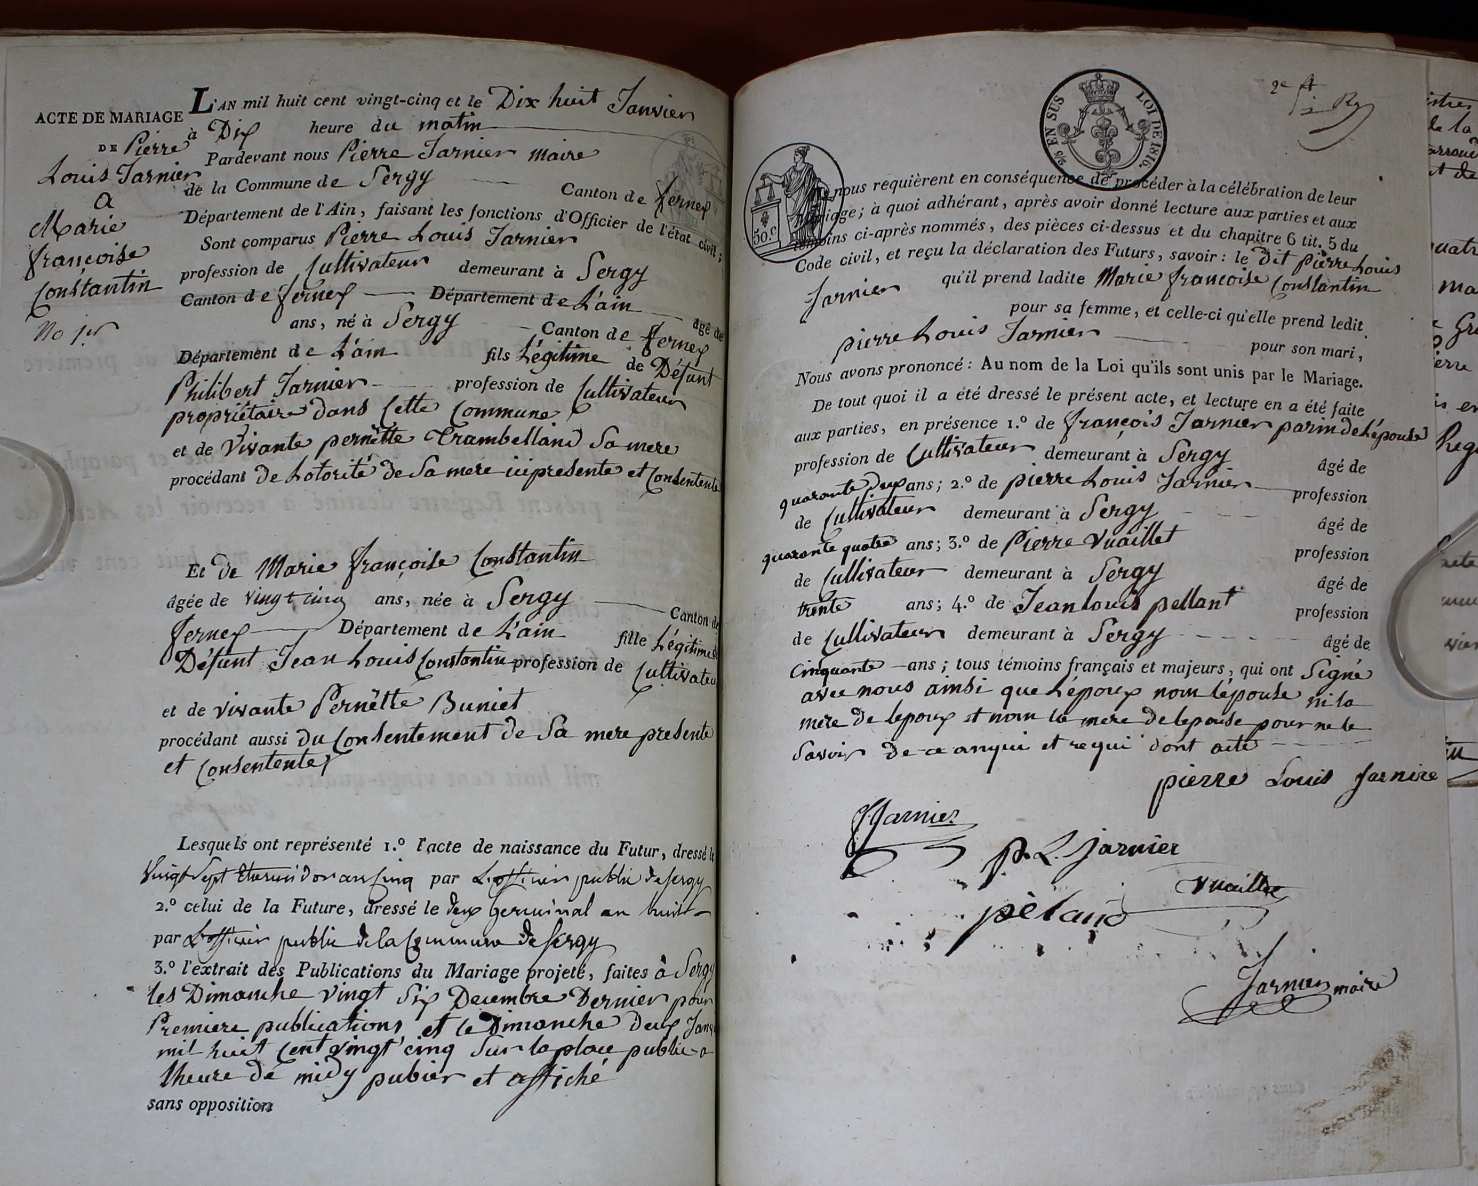 ACTE DE MARIAGE
DE Pierre
Louis Jarnier
A
Marie
françoise
Constantin
No 1er
L'AN mil huit cent vingt-cinq et le Dix huit Janvier
à Dix heure du matin
Pardevant nous Pierre Jarnier maire
de la Commune de Sergy Canton de fernex
Département de l'Ain, faisant les fonctions d'Officier de l'état civil;
Sont comparus Pierre Louis Jarnier
profession de Cultivateur demeurant à Sergy
Canton de fernex Département de L'ain âgé de
ans, né à Sergy Canton de fernex
Département de L'ain fils Légitime de Défunt
Philibert Jarnier profession de Cultivateur
propriétaire dans Cette Commune
et de vivante pernêtte Trambelland Sa mere
procédant de Lotorité de Sa mere ici presente et Consentente
Et de Marie françoise Constantin
âgée de vingt cinq ans, née à Sergy Canton de
fernex Département de L'ain fille Légitime
Défunt Jean Louis Constantin profession de Cultivateur
et de vivante Pernêtte Buniet
procédant aussi du Consentement de Sa mere presente
et Consentente
Lesquels ont représenté 1.º l'acte de naissance du Futur, dressé le
vingt Sept an Cinq par L'officier public de Sergy
2.º celui de la Future, dressé le deux germinal an huit
par L'officier public de la Commune de Sergy
3.º l'extrait des Publications du Mariage projeté, faites à Sergy
les Dimanche vingt Six Decembre Dernier pour
Premiere publications et le Dimanche Deux Janv
mil huit Cent vingt cinq Sur la place public a
lheure de midy pubier et affiché
sans opposition
2e ft
EN SUS LOI DE 1816
50.c
nous requièrent en conséquence de procéder à la célébration de leur
mariage; à quoi adhérant, après avoir donné lecture aux parties et aux
témoins ci-après nommés, des pièces ci-dessus et du chapitre 6 tit. 5 du
Code civil, et reçu la déclaration des Futurs, savoir: le dit pierre Louis
Jarnier qu'il prend ladite Marie françoise Constantin
pour sa femme, et celle-ci qu'elle prend ledit
pierre Louis Jarnier pour son mari,
Nous avons prononcé: Au nom de la Loi qu'ils sont unis par le Mariage.
De tout quoi il a été dressé le présent acte, et lecture en a été faite
aux parties, en présence 1.º de françois Jarnier parin de Lépouse
profession de Cultivateur demeurant à Sergy âgé de
quarante Deux ans; 2.º de pierre Louis Jarnier profession
de Cultivateur demeurant à Sergy âgé de
quarante quatre ans; 3.º de Pierre Vuaillet profession
de Cultivateur demeurant à Sergy âgé de
trente ans; 4.º de Jean Louis pellant profession
de Cultivateur demeurant à Sergy âgé de
Cinquante ans; tous témoins français et majeurs, qui ont Signé
avec nous ainsi que Lépoux non lépouse ni la
mere de lepoux et non la mere de lepouse pour ne le
Savoir de ce anqui et requi dont acte
pierre Louis Jarnire
fJarnier
p. L. jarnier
vuaillet
pèland
Jarnier maire